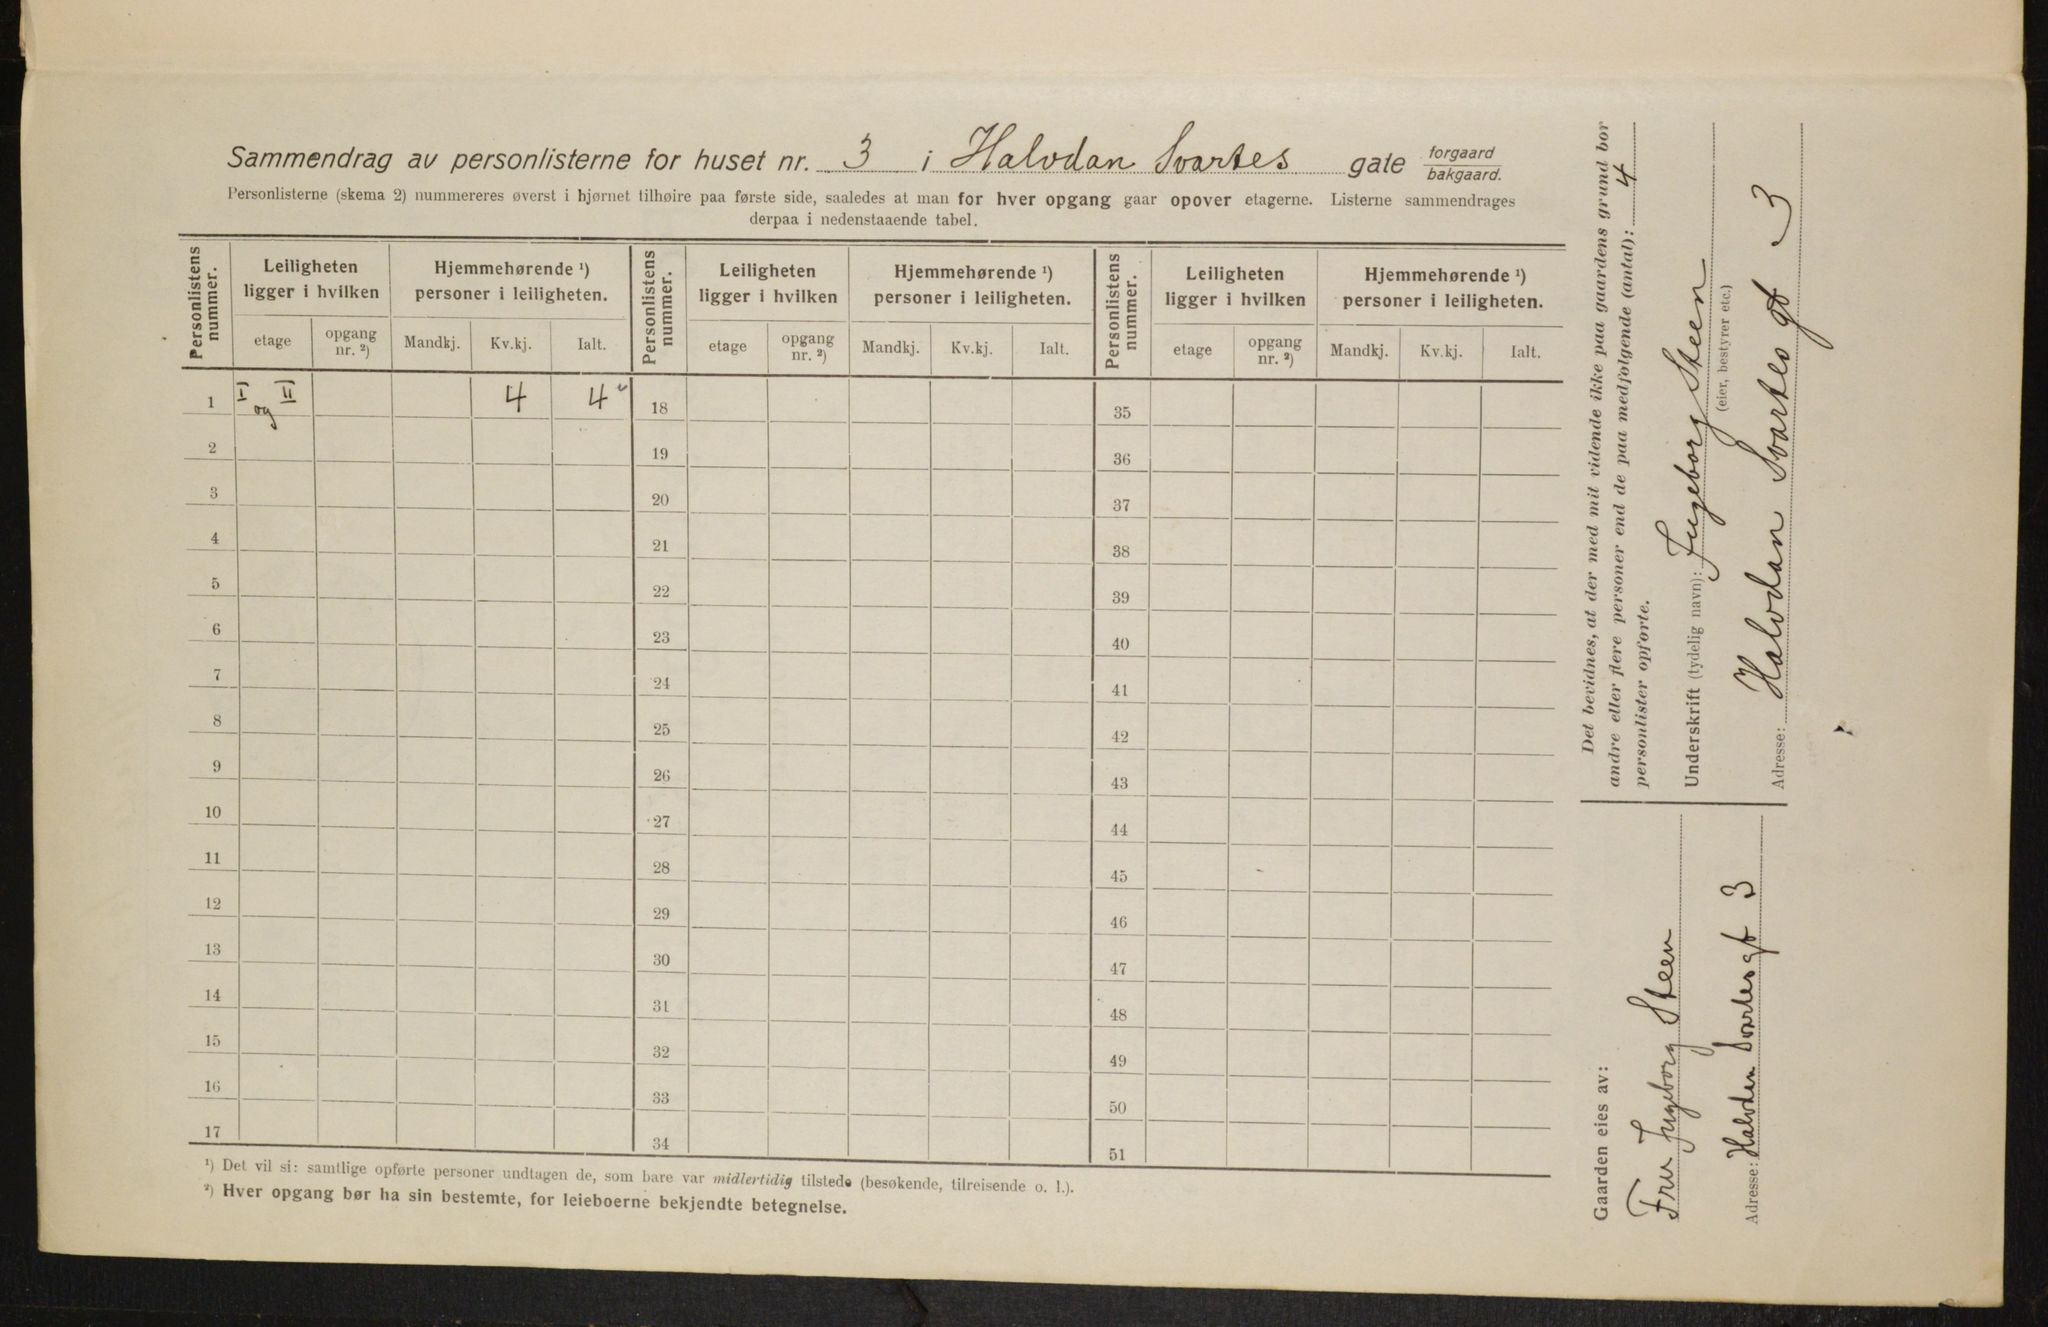 Sammendrag av personlisterne for huset nr. 3 i Halvdan Svartes gate forgaard
bakgaard.
Personlisterne (skema 2) nummereres øverst i hjørnet tilhøire paa første side, saaledes at man for hver opgang gaar opover etagerne. Listerne sammendrages
derpaa i nedenstaaende tabel.
Personlistens nummer. Leiligheten ligger i hvilken Hjemmehørende ¹) personer i leiligheten. Personlistens nummer. Leiligheten ligger i hvilken Hjemmehørende ¹) personer i leiligheten. Personlistens nummer. Leiligheten ligger i hvilken Hjemmehørende ¹) personer i leiligheten.
etage opgang nr. ²) Mandkj. Kv.kj. Ialt. etage opgang nr. ²) Mandkj. Kv.kj. Ialt. etage opgang nr. ²) Mandkj. Kv.kj. Ialt.
1 I og II 4 4 18 35
2 19 36
3 20 37
4 21 38
5 22 39
6 23 40
7 24 41
8 25 42
9 26 43
10 27 44
11 28 45
12 29 46
13 30 47
14 31 48
15 32 49
16 33 50
17 34 51
¹) Det vil si: samtlige opførte personer undtagen de, som bare var midlertidig tilstede (besøkende, tilreisende o. l.).
²) Hver opgang bør ha sin bestemte, for leieboerne bekjendte betegnelse.
Det bevidnes, at der med mit vidende ikke paa gaardens grund bor
andre eller flere personer end de paa medfølgende (antal): 4
personlister opførte.
Underskrift (tydelig navn): Ingeborg Steen
(eier, bestyrer etc.)
Adresse: Halvdan Svartes gt 3
Gaarden eies av:
Fru Ingeborg Steen
Adresse: Halvdan Svartes gt 3